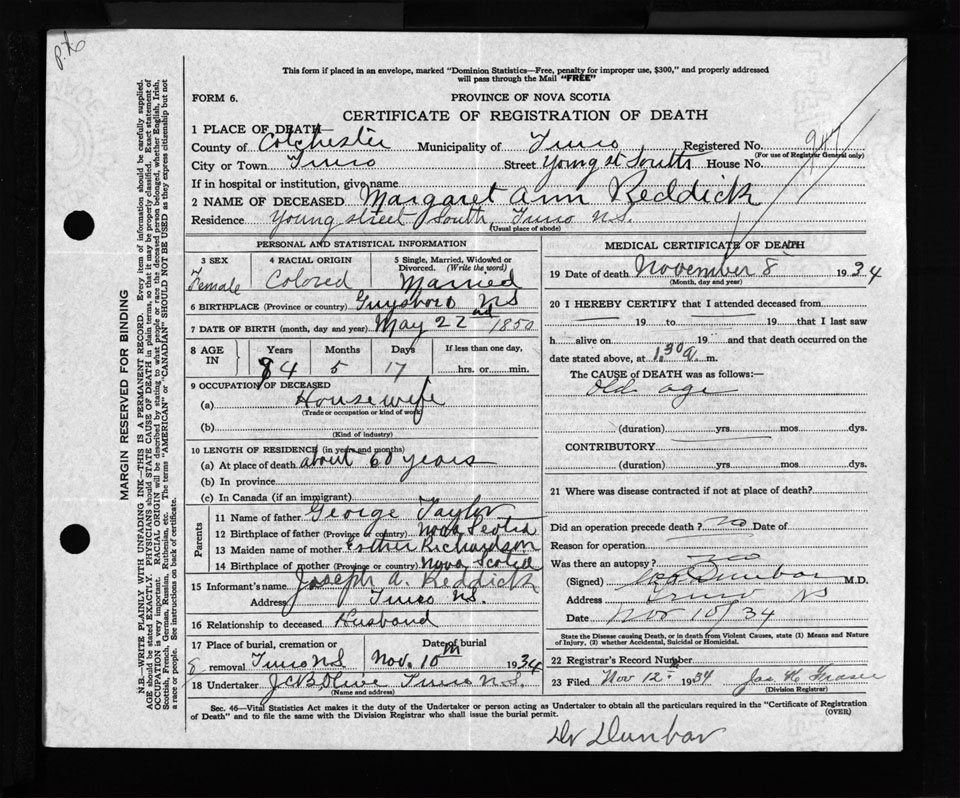 This form if placed in an envelope, marked "Dominion Statistics—Free, penalty for improper use, $300," and properly addressed
will pass through the Mail "FREE"
FORM 6.
PROVINCE OF NOVA SCOTIA
CERTIFICATE OF REGISTRATION OF DEATH
1 PLACE OF DEATH
County of Colchester Municipality of Truro Registered No. 947
(For use of Registrar General only)
City or Town Truro Street Young st South House No.
If in hospital or institution, give name
2 NAME OF DECEASED Margaret Ann Reddick
Residence Young street South, Truro N.S.
(Usual place of abode)
PERSONAL AND STATISTICAL INFORMATION
3 SEX
Female
4 RACIAL ORIGIN
Colored
5 Single, Married, Widowed or
Divorced. (Write the word)
Married
6 BIRTHPLACE (Province or country) Guysboro NS
7 DATE OF BIRTH (month, day and year) May 22nd 1850
8 AGE IN
Years Months Days If less than one day,
84 5 17 hrs. or min.
9 OCCUPATION OF DECEASED
(a) Housewife
(Trade or occupation or kind of work)
(b)
(Kind of industry)
10 LENGTH OF RESIDENCE (in years and months)
(a) At place of death about 60 years
(b) In province
(c) In Canada (if an immigrant)
Parents
11 Name of father George Taylor
12 Birthplace of father (Province or country) Nova Scotia
13 Maiden name of mother Esther Richardson
14 Birthplace of mother (Province or country) Nova Scotia
15 Informant's name Joseph A. Reddick
Address Truro NS.
16 Relationship to deceased Husband
17 Place of burial, cremation or Date of burial
removal Truro NS Nov. 10th 1934
18 Undertaker Truro N.S.
(Name and address)
MEDICAL CERTIFICATE OF DEATH
19 Date of death November 8 1934
(Month, day and year)
20 I HEREBY CERTIFY that I attended deceased from
19 to 19 that I last saw
h alive on 19 and that death occurred on the
date stated above, at 1.30 a. m.
The CAUSE OF DEATH was as follows:—
Old age
(duration) yrs mos dys.
CONTRIBUTORY
(duration) yrs. mos. dys.
21 Where was disease contracted if not at place of death?
Did an operation precede death? no Date of
Reason for operation
Was there an autopsy? no
(Signed) Dunbar M.D.
Address Truro NS
Date Nov 10/34
State the Disease causing Death, or in death from Violent Causes, state (1) Means and Nature
of Injury, (2) whether Accidental, Suicidal or Homicidal.
22 Registrar's Record Number
23 Filed Nov 12 1934 Jas. K. Fraser
(Division Registrar)
Sec. 46—Vital Statistics Act makes it the duty of the Undertaker or person acting as Undertaker to obtain all the particulars required in the "Certificate of Registration
of Death" and to file the same with the Division Registrar who shall issue the burial permit. (OVER)
Dr Dunbar
MARGIN RESERVED FOR BINDING
N.B.—WRITE PLAINLY WITH UNFADING INK—THIS IS A PERMANENT RECORD. Every item of information should be carefully supplied.
AGE should be stated EXACTLY. PHYSICIANS should STATE CAUSE OF DEATH in plain terms, so that it may be properly classified. Exact statement of
OCCUPATION is very important. RACIAL ORIGIN will be described by stating to what people or race the deceased person belonged, whether English, Irish,
Scottish, French, German, Russian, Ruthenian, etc. The terms "AMERICAN" or "CANADIAN" SHOULD NOT BE USED as they express citizenship but not
a race or people. See instructions on back of certificate.